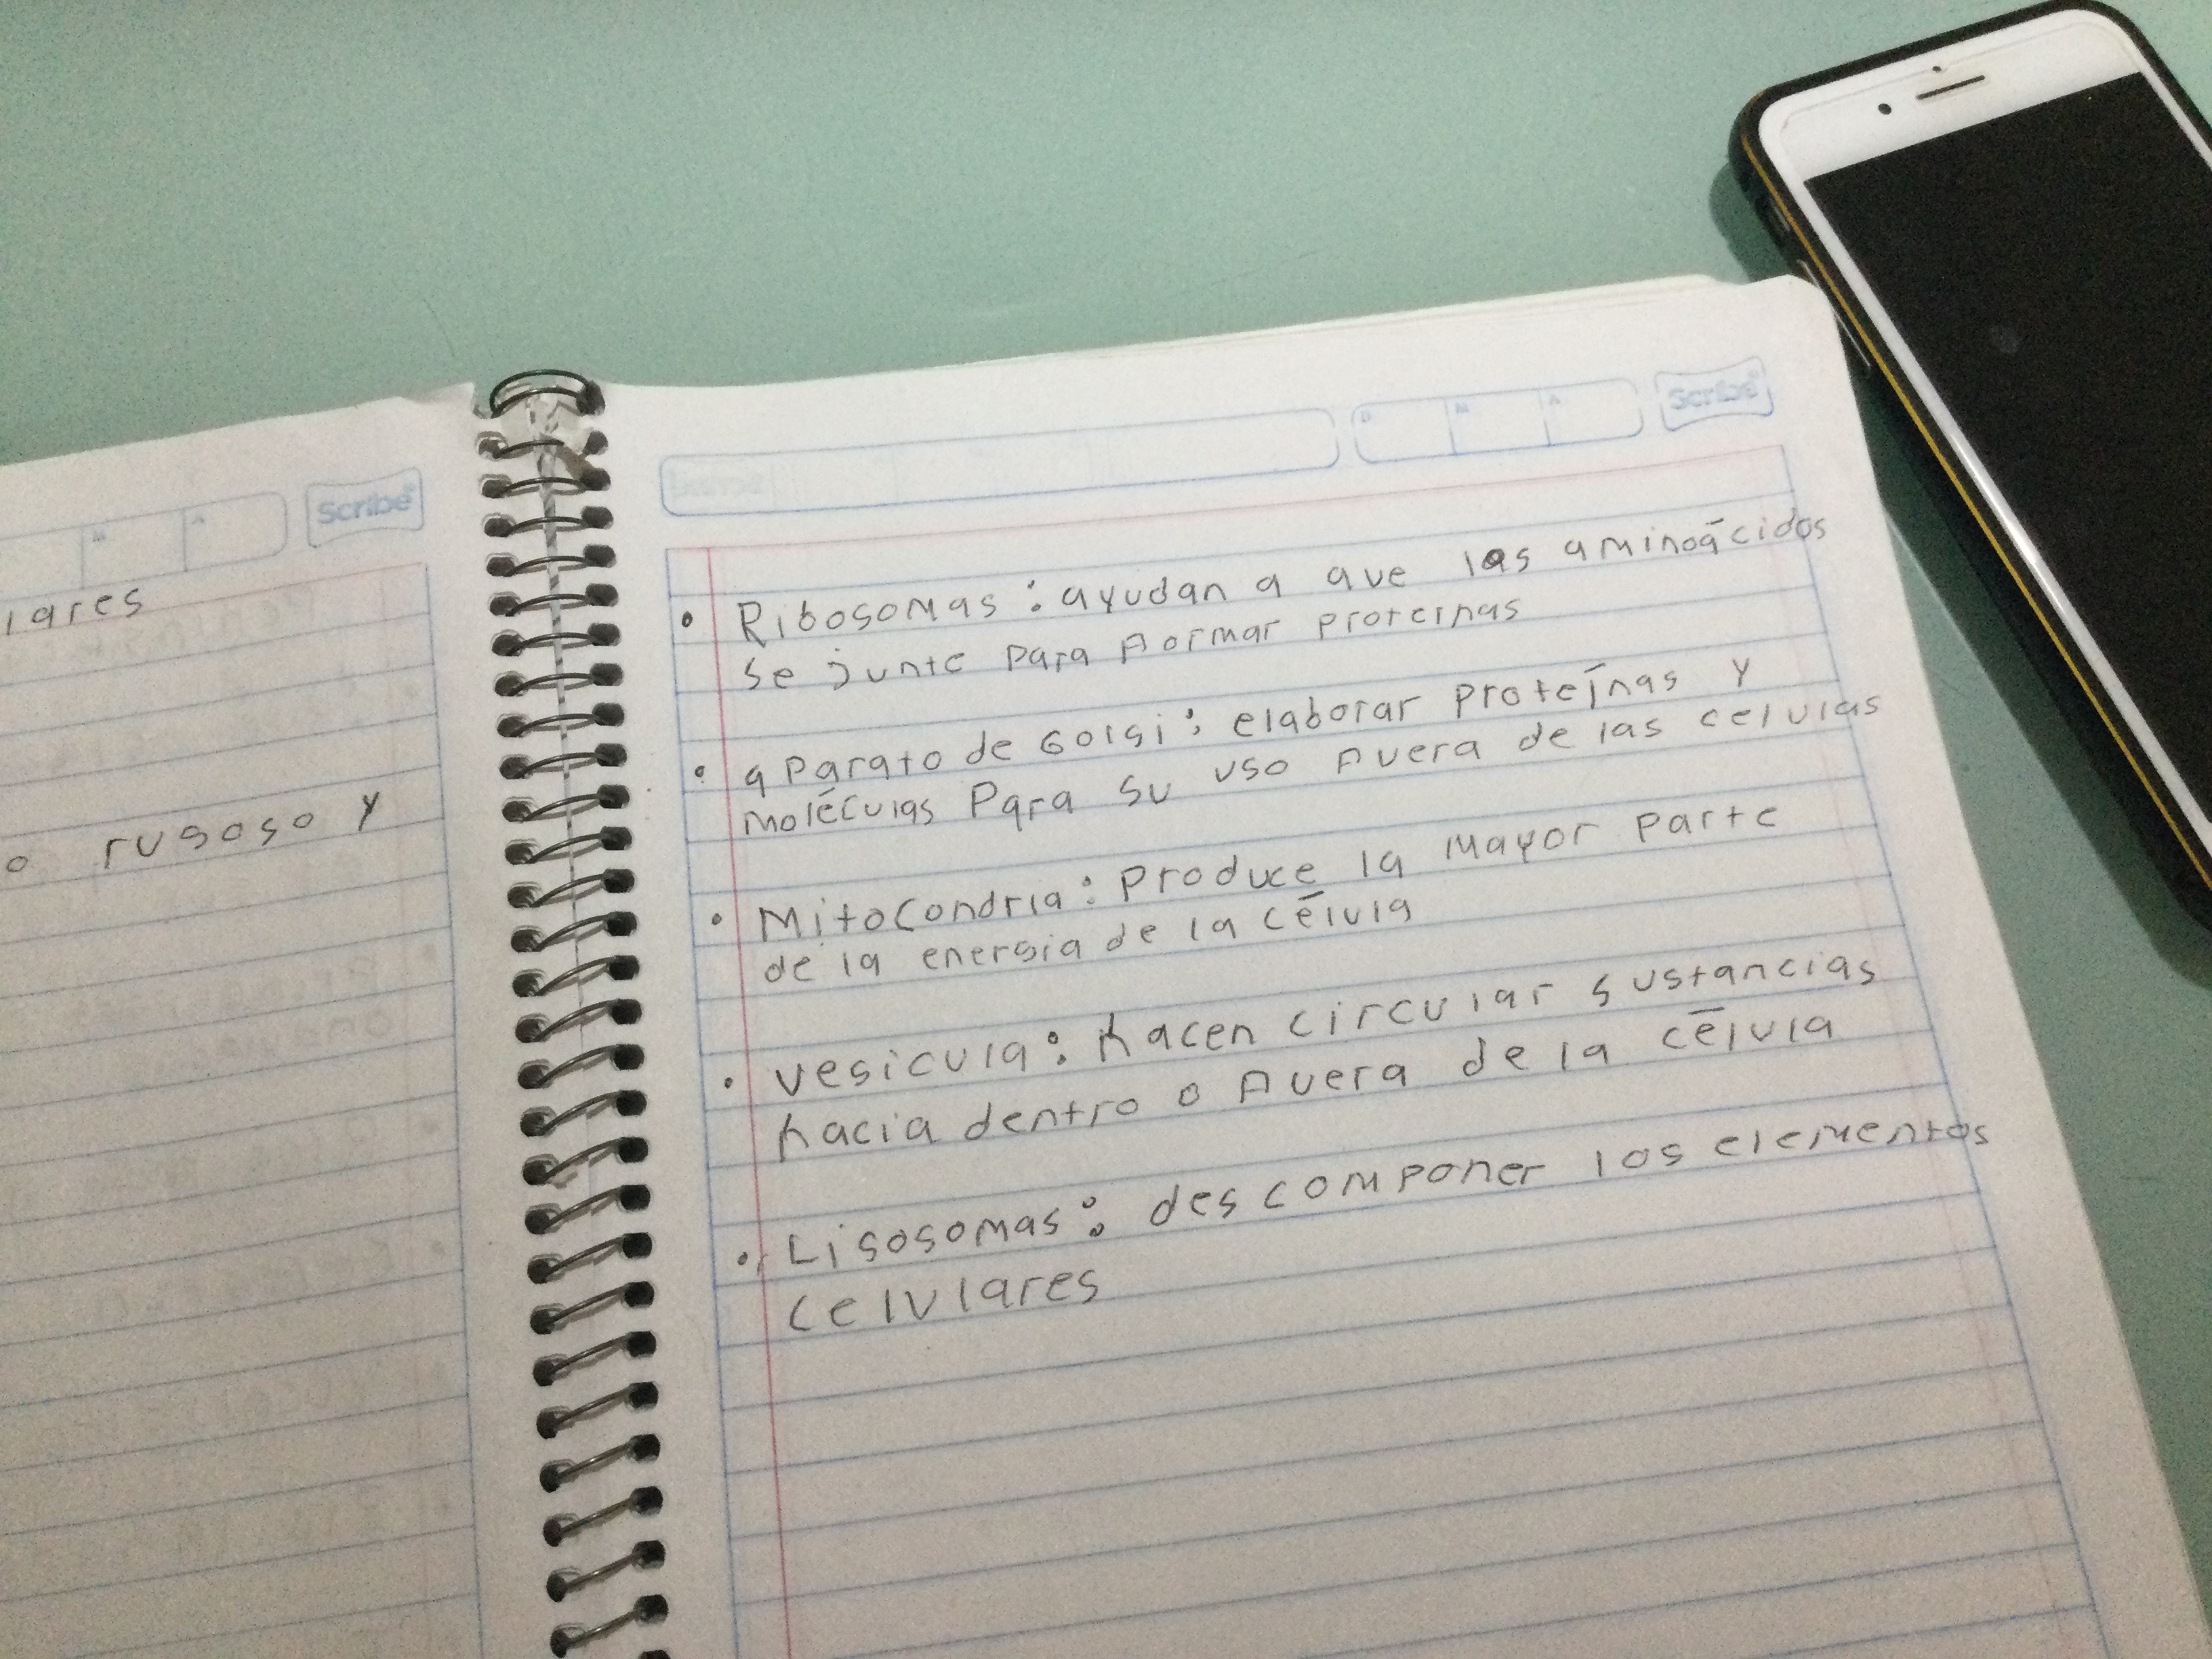 Scribe
lares
o rugoso y
Scribe
D M A
• Ribosomas: ayudan a que los aminoácidos
se junte para formar proteinas
• aparato de Golgi: elaborar proteínas y
moléculas para su uso fuera de las celulas
• Mitocondria: produce la mayor parte
de la energia de la célula
• vesicula: hacen circular sustancias
hacia dentro o fuera de la célula
• Lisosomas: descomponer los elementos
celulares